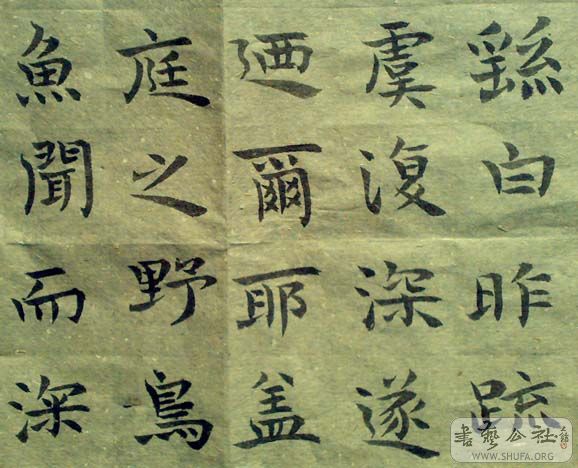 繇白昨疏
虞復深遂
廼爾耶盖
庭之野鳥
魚聞而深
書藝公社
WWW.SHUFA.ORG